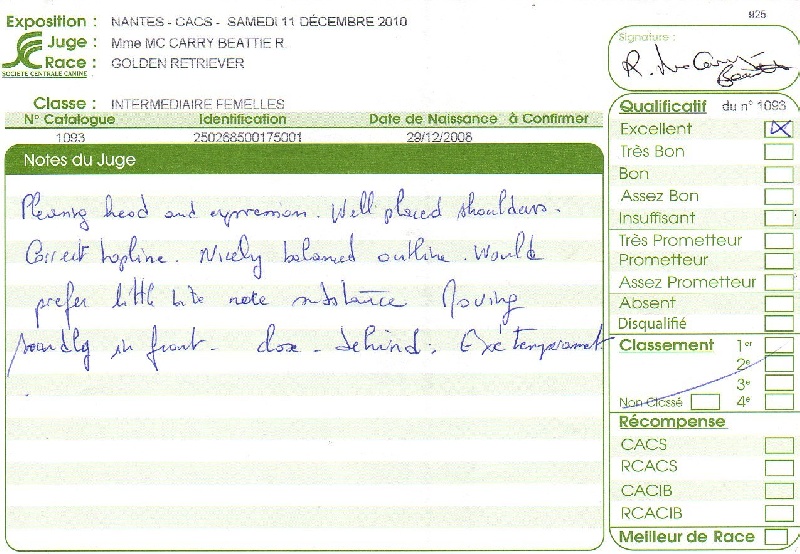 925
Exposition : NANTES - CACS - SAMEDI 11 DÉCEMBRE 2010
Juge : Mme MC CARRY BEATTIE R.
Race : GOLDEN RETRIEVER
SOCIÉTÉ CENTRALE CANINE
Signature :
R. McCarry Beattie
Classe : INTERMEDIAIRE FEMELLES
N° Catalogue Identification Date de Naissance à Confirmer
1093 250268500175001 29/12/2008
Notes du Juge
Pleasing head and expression. Well placed shoulders.
Correct topline. Nicely balanced outline. Would
prefer little bit more substance Moving
soundly in front. close behind. Exc temperament
Qualificatif du n° 1093
Excellent
Très Bon
Bon
Assez Bon
Insuffisant
Très Prometteur
Prometteur
Assez Prometteur
Absent
Disqualifié
Classement 1er
2e
3e
Non Classé 4e
Récompense
CACS
RCACS
CACIB
RCACIB
Meilleur de Race